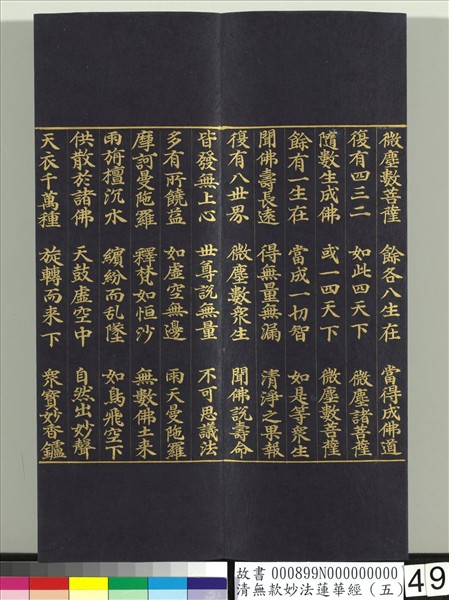 微塵數菩薩 餘各八生在 當得成佛道
復有四三二 如此四天下 微塵諸菩薩
隨數生成佛 或一四天下 微塵數菩薩
餘有一生在 當成一切智 如是等眾生
聞佛壽長遠 得無量無漏 清淨之果報
復有八世界 微塵數眾生 聞佛說壽命
皆發無上心 世尊說無量 不可思議法
多有所饒益 如虛空無邊 雨天曼陀羅
摩訶曼陀羅 釋梵如恒沙 無數佛土來
雨旃檀沉水 繽紛而乱墜 如鳥飛空下
供散於諸佛 天鼓虛空中 自然出妙聲
天衣千萬種 旋轉而来下 眾寶妙香鑪
故書 000899N000000000
清無款妙法蓮華經（五）
49